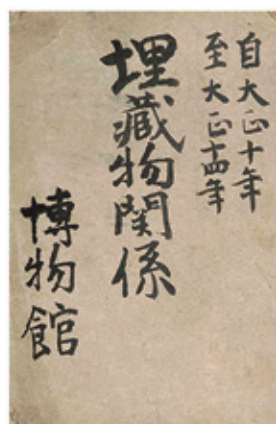 自大正十年
至大正十四年
埋藏物関係
博物館